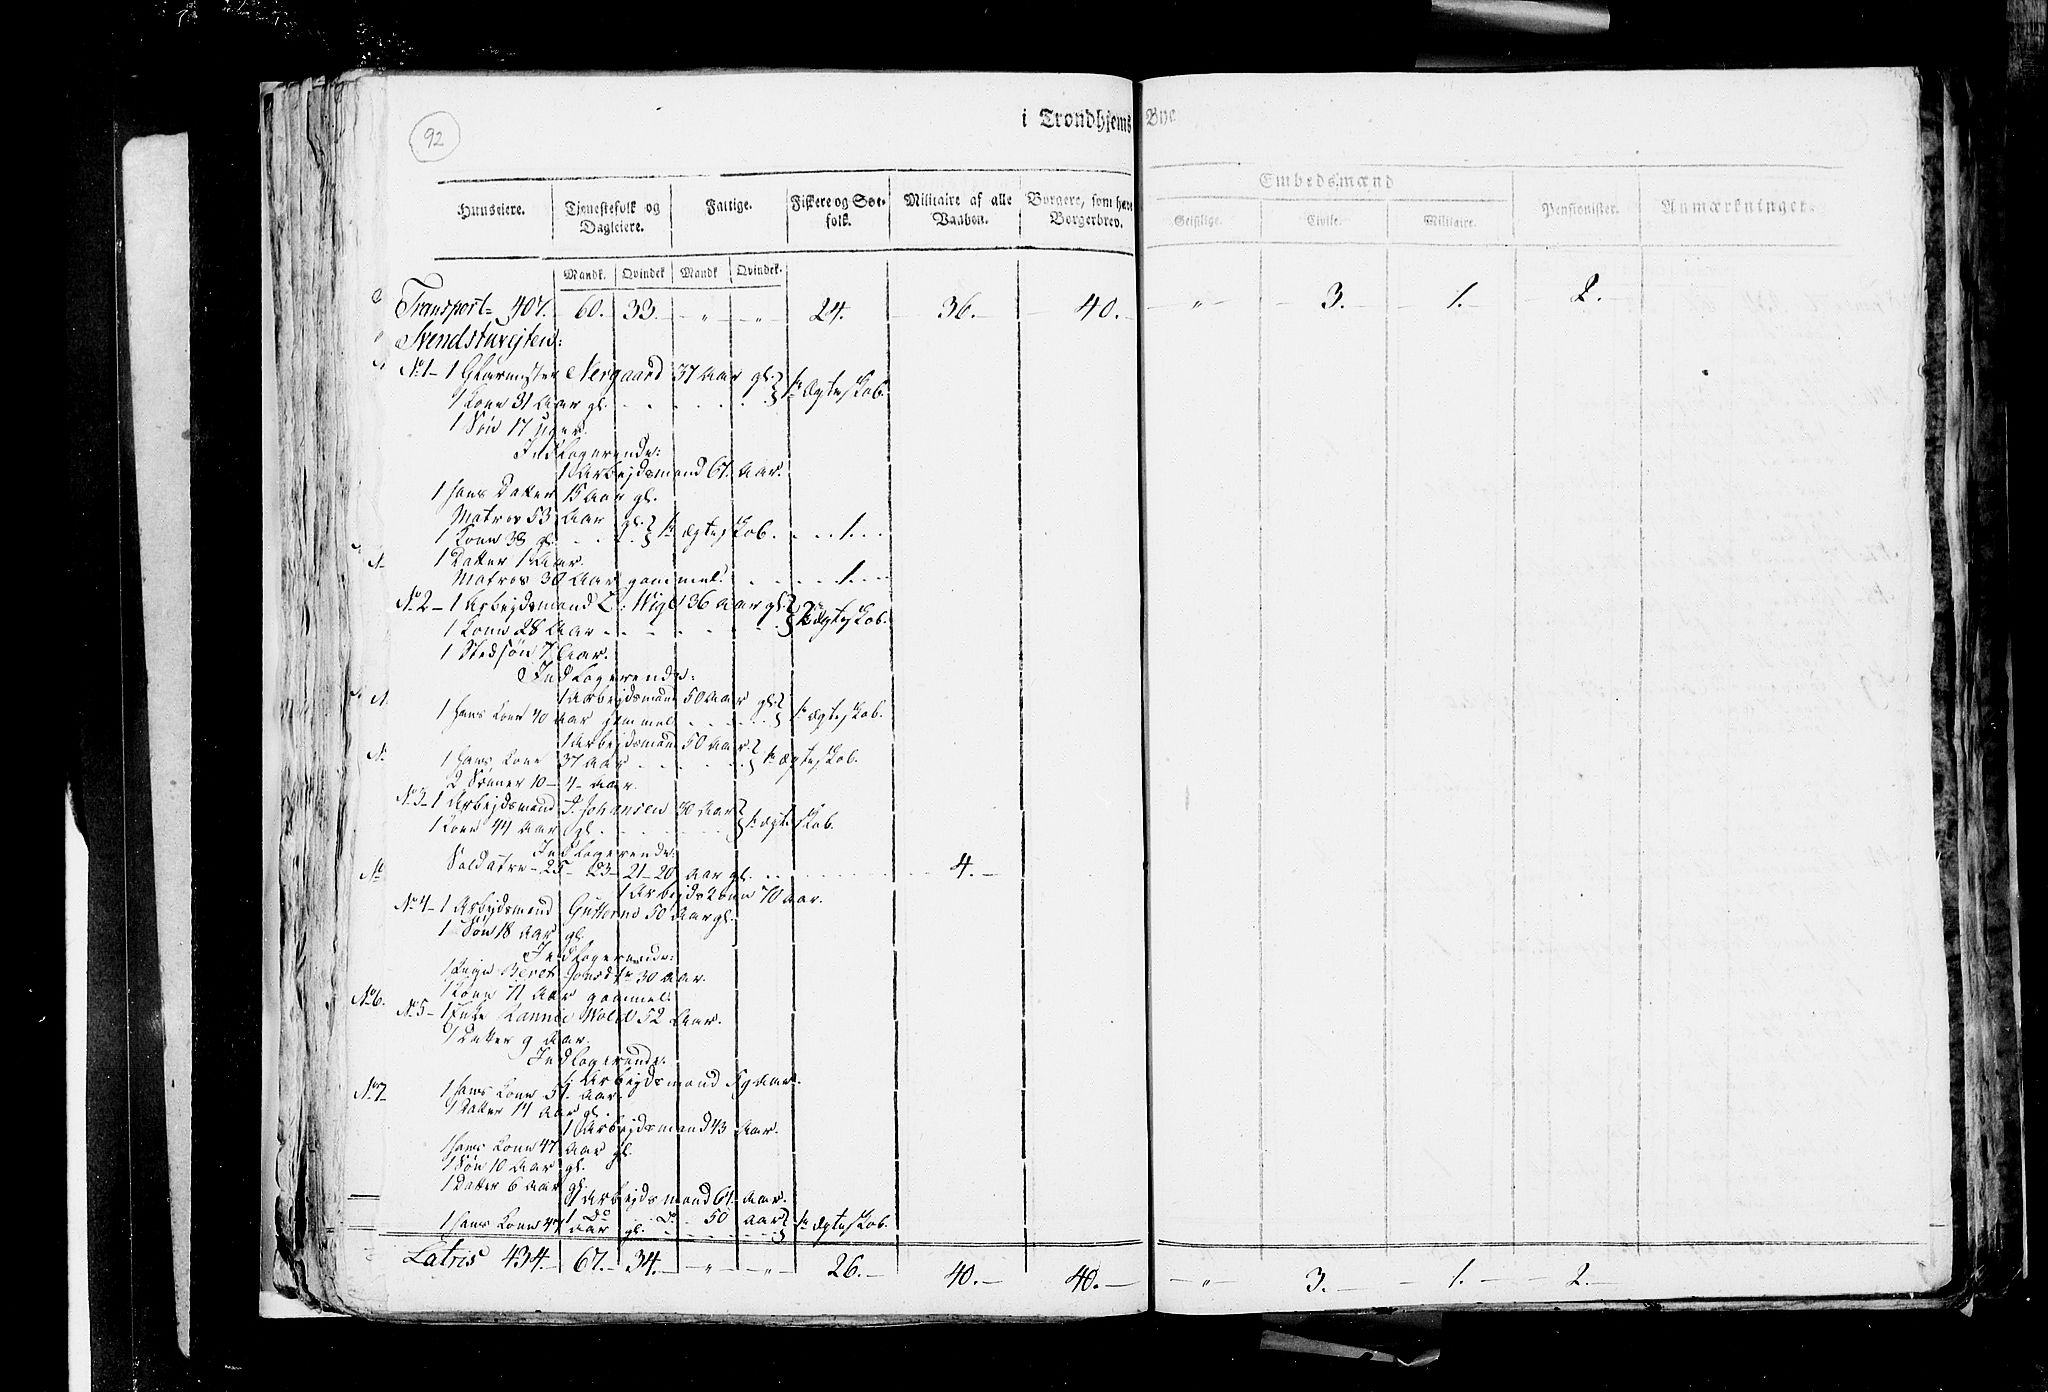 92
i Trondhjems Bye
Huuseiere. Tjenestefolk og Dagleiere. Fattige. Fiskere og Søefolk. Militaire af alle Vaaben. Borgere, som have Borgerbrev. Embedsmænd Pensionister. Anmærkninger.
Geistlige. Civile. Militaire.
Mandk. Qvindek Mandk Qvindek.
Transport 407. 60. 33. " " 24. 36. 40. " 3. 1. 2.
No 1 - 1 Nergaard 37 Aar gl. Ægteskab.
1 Kone 31 Aar gl.
1 Søn 17 Uger.
Indlogerende:
1 Arbejdsmand 67. Aar.
1 hans Datter 15 Aar gl.
Matros 53 Aar gl. 1 Ægteskab. 1.
1 Kone 38 gl.
1 Datter 1 Aar.
Matros 30 Aar gammel. 1.
No 2 - 1 Arbejdsmand 36 Aar gl. Ægteskab.
1 Kone 28 Aar
1 Stedsøn 7 Aar.
Indlogerende:
1 Arbejdsmand 50 Aar gl. Ægteskab.
1 hans Kone 40 Aar gammel
1 Arbejdsmand 50 Aar Ægteskab.
1 hans Kone 37 Aar
2 Sønner 10 - 4 - Aar.
No 3 - 1 Arbejdsmand J. Johansen 30 Aar Ægteskab.
1 Kone 44 Aar gl.
Indlogerende:
Soldater - 25 - 23 - 21 - 20 Aar gl. 4.
1 Arbejdskone 70 Aar.
No 4 - 1 Arbejdsmand 50 Aar gl.
1 Søn 18 Aar gl.
Indlogerende:
1 Pige Beret Jonsdtr 30 Aar.
1 Kone 71 Aar gammel.
No 6.
No 5 - 1 Enke Wold 52 Aar.
1 Datter 9 Aar.
Indlogerende.
1 Arbejdsmand Aar.
No 7
1 hans Kone 51. Aar.
1 Datter 14 Aar gl.
1 Arbejdsmand 43 Aar.
1 hans Kone 47 Aar gl.
1 Søn 10 Aar gl.
1 Datter 6 Aar gl.
1 Arbejdsmand 67. Aar.
1 Do Do 50 Aar Ægteskab.
1 hans Kone 47 Aar gl.
Latris 434. 67. 34. " " 26. 40. 40. " 3. 1. 2.